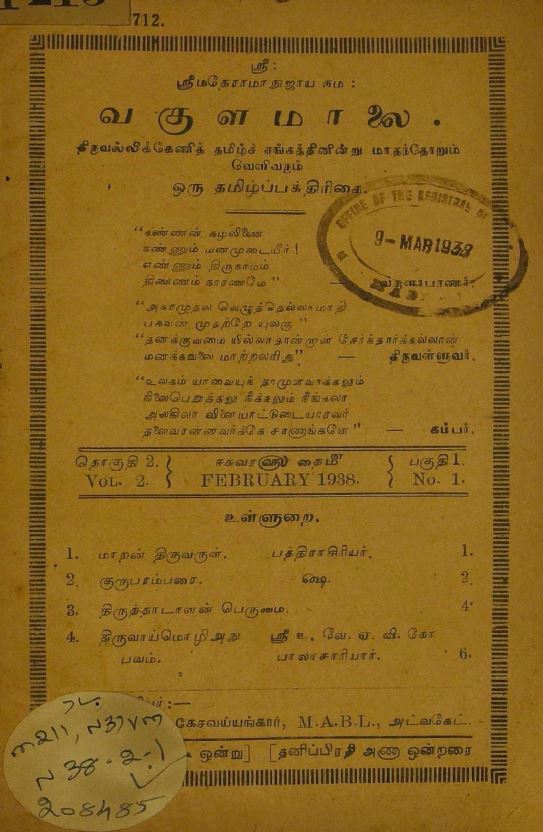 712.
ஸ்ரீ:
ஸ்ரீமதேராமாநுஜாய நம:
வகுளமாலை.
திருவல்லிக்கேணித் தமிழ்ச் சங்கத்தினின்று மாதந்தோறும்
வெளிவரும்
ஒரு தமிழ்ப்பத்திரிகை.
OFFICE OF THE REGISTRAR OF
9-MAR 1938
"கண்ணன் கழலிணை
நண்ணும் மனமுடையீர்!
எண்ணும் திருநாமம்
திண்ணம் நாரணமே" —
"அகரமுதல வெழுத்தெல்லாமாதி
பகவன் முதற்றே யுலகு"
"தனக்குவமை யில்லாதான்றாள் சேர்ந்தார்க்கல்லால்
மனக்கவலை மாற்றலரிது" — திருவள்ளுவர்.
"உலகம் யாவையுந் தாமுளவாக்கலும்
நிலைபெறுத்தலு நீக்கலும் நீங்கலா
அலகிலா விளையாட்டுடையாரவர்
தலைவரன்னவர்க்கே சரணாங்களே" — கம்பர்.
தொகுதி 2. ஈசுவரளு தைமீ பகுதி 1.
VOL. 2. FEBRUARY 1938. No. 1.
உள்ளுறை.
1. மாறன் திருவருள். பத்திராசிரியர். 1.
2. குருபரம்பரை. ௸ 2.
3. திருத்தாடாளன் பெருமை. 4
4. திருவாய்மொழி அநு ஸ்ரீ உ. வே. ஏ. வி. கோ
பவம். பாலாசாரியார். 6.
கேசவய்யங்கார், M.A.B.L., அட்வகேட்.
ஒன்று] [தனிப்பிரதி அணா ஒன்றரை
208485